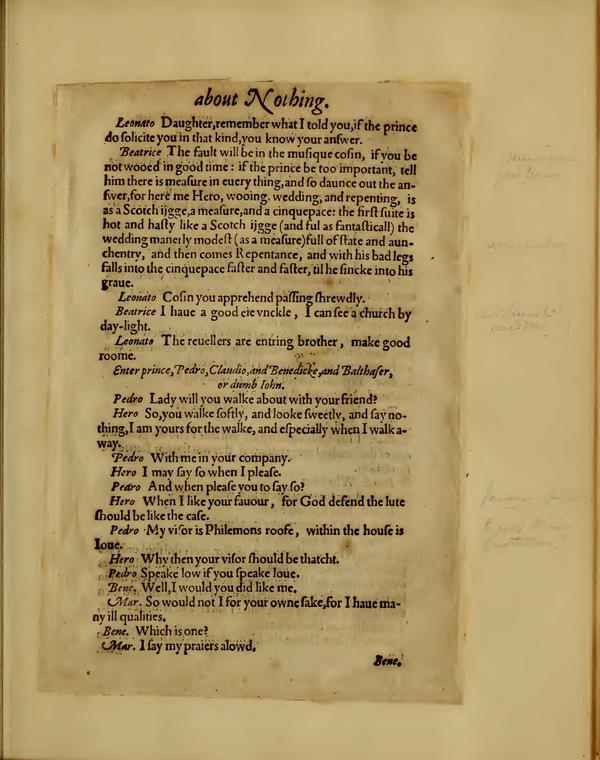 about Nothing.
Leonato Daughter,remember what I told you,if the prince
do ſolicite you in that kind,you know your anſwer.
Beatrice The fault will be in the muſique coſin, if you be
not wooed in good time : if the prince be too important, tell
him there is meaſure in euery thing,and ſo daunce out the an-
ſwer,for here me Hero, wooing, wedding, and repenting, is
as a Scotch ijgge,a meaſure,and a cinquepace: the firſt ſuite is
hot and haſty like a Scotch ijgge (and ful as fantaſticall) the
wedding manerly modeſt (as a meaſure)full of ſtate and aun-
chentry, and then comes Repentance, and with his bad legs
falls into the cinquepace faſter and faſter, til he ſincke into his
graue.
Leonato Coſin you apprehend paſſing ſhrewdly.
Beatrice I haue a good eie vnckle, I can ſee a church by
day-light.
Leonato The reuellers are entring brother, make good
roome.
Enter prince,Pedro,Claudio,and Benedicke,and Balthaſer,
or dumb Iohn.
Pedro Lady will you walke about with your friend?
Hero So,you walke ſoftly, and looke ſweetly, and ſay no-
thing,I am yours for the walke, and eſpecially when I walk a-
way.
Pedro With me in your company.
Hero I may ſay ſo when I pleaſe.
Pedro And when pleaſe you to ſay ſo?
Hero When I like your fauour, for God defend the lute
ſhould be like the caſe.
Pedro My viſor is Philemons roofe, within the houſe is
Ioue.
Hero Why then your viſor ſhould be thatcht.
Pedro Speake low if you ſpeake loue.
Bene. Well,I would you did like me.
Mar. So would not I for your owne ſake,for I haue ma-
ny ill qualities.
Bene. Which is one?
Mar. I ſay my praiers alowd.
Bene.